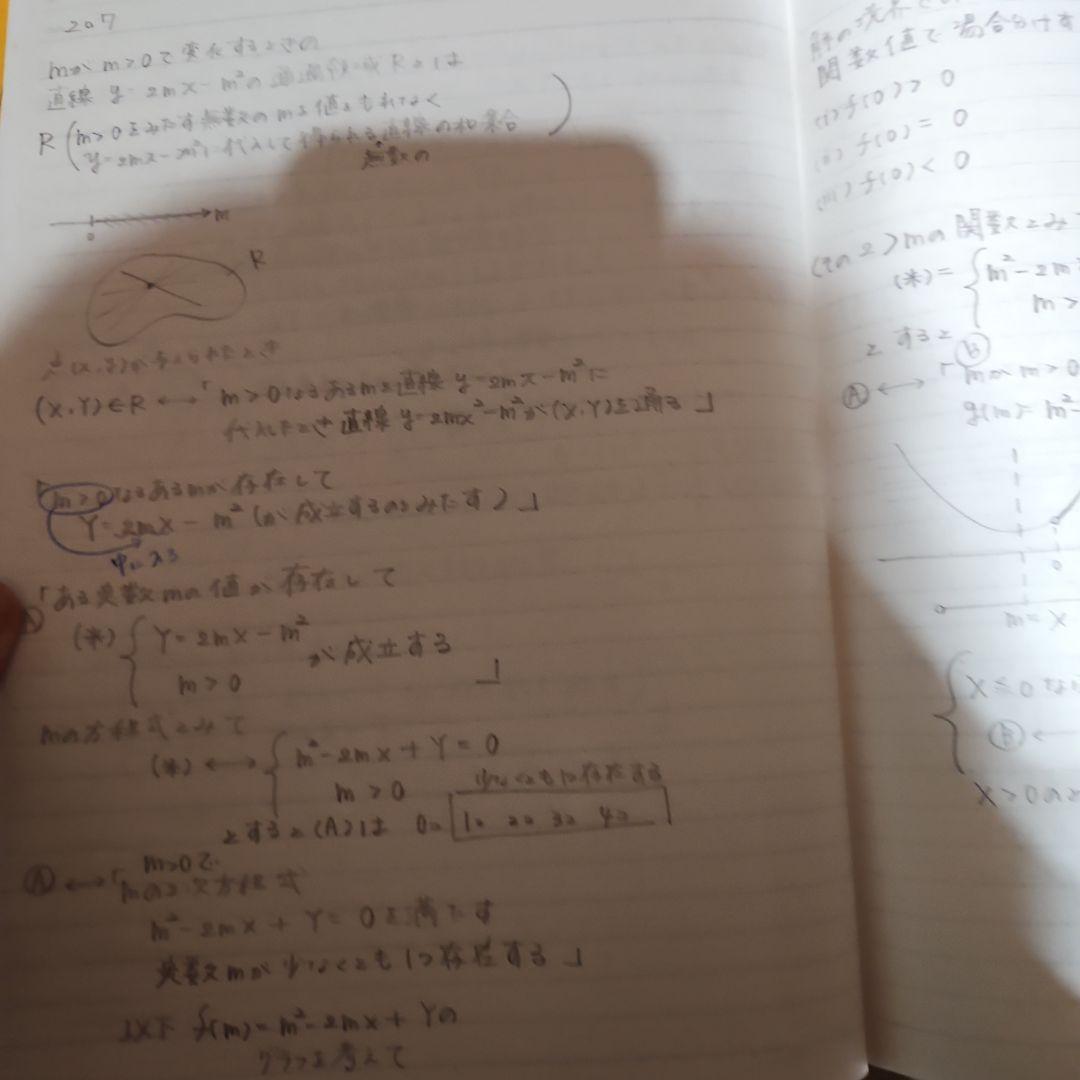 207
mが m>0で変化するときの
直線 y=2mx-m²の通過領域Rとは
R(m>0をみたす無数のmを値をもれなく
y=2mx-m²に代入して得られる直線の和集合)
無数の
0 m
R
点(X,Y)が与えられたとき
(X,Y)∈R ↔ 「m>0なるあるmを直線 y=2mx-m²に
代入したとき直線 y=2mx²-m²が(X,Y)を通る」
「m>0なるあるmが存在して
Y=2mX-m²(が成立するのみたす)」
中に入る
「ある実数mの値が存在して
A (*) { Y=2mX-m²
m>0 が成立する」
mの方程式とみて
(*) ↔ { m²-2mX+Y=0
m>0 少なくとも1つ存在する
とすると(A)は 0こ 1こ 2こ 3こ 4こ
m>0で
Ⓐ ↔ 「mの2次方程式
m²-2mX+Y=0を満たす
実数mが少なくとも1つ存在する」
以下 f(m)=m²-2mX+Yの
グラフを考えて
関数値で場合分けす
(i) f(0)>0
(ii) f(0)=0
(iii) f(0)<0
(その2)mの関数とみ
(*)= { m²-2m
m>
とすると
Ⓑ
Ⓐ ↔ 「mがm>0
g(m)=m²-
0
m=X
{ X≤0な
Ⓑ ←
X>0のと